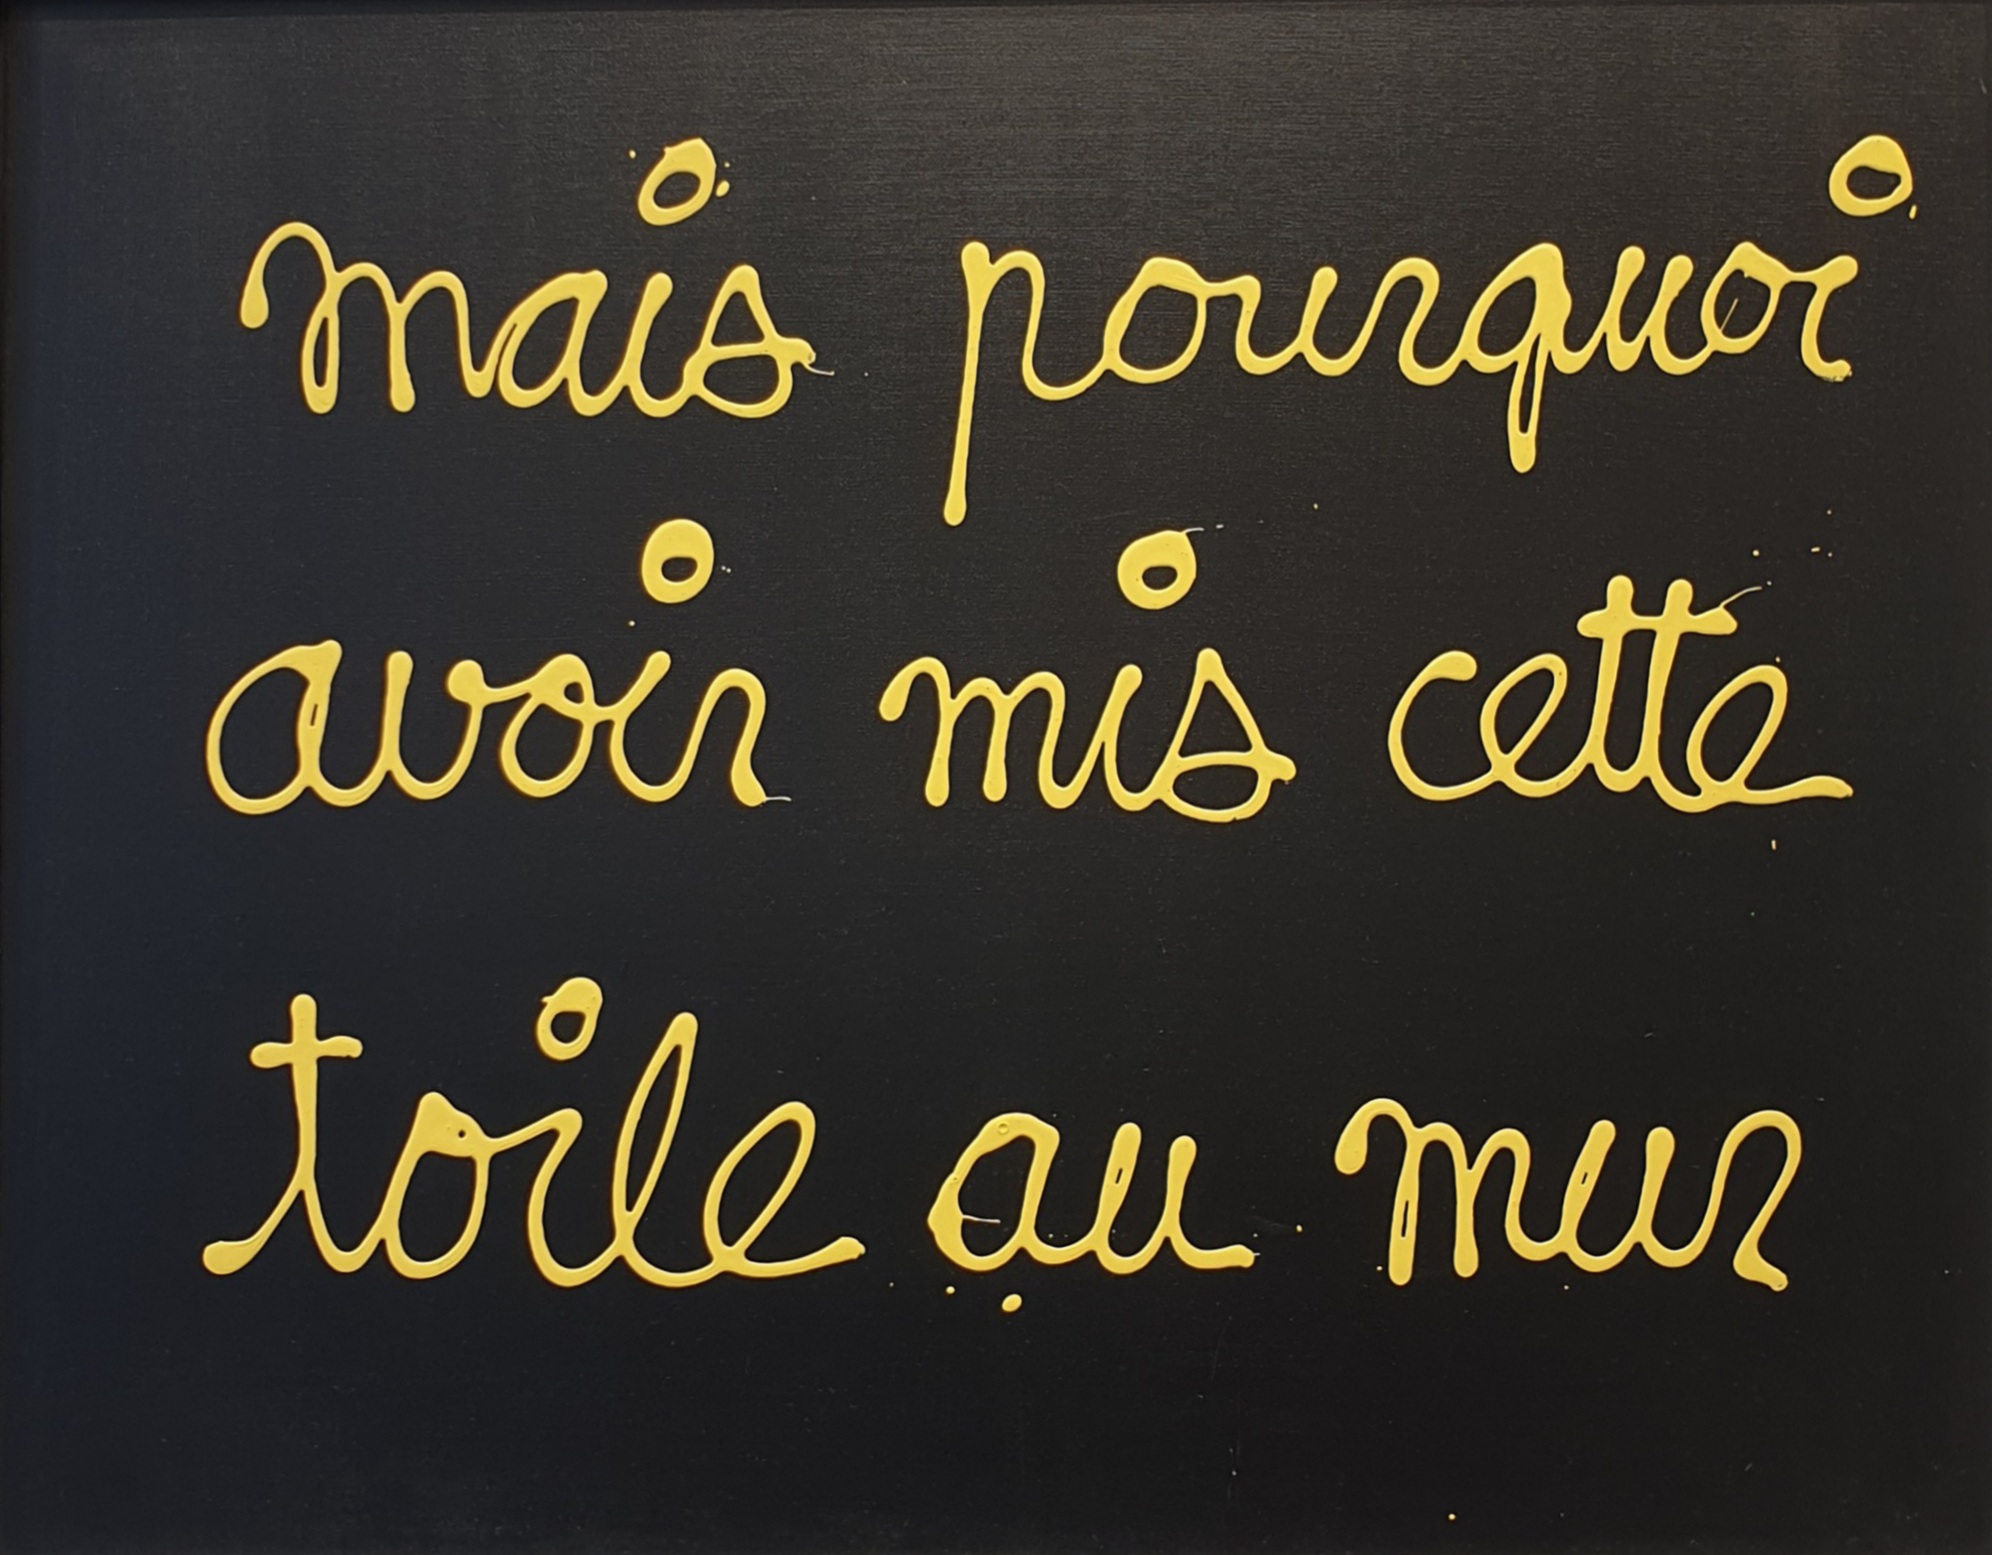 mais pourquoi
avoir mis cette
toile au mur